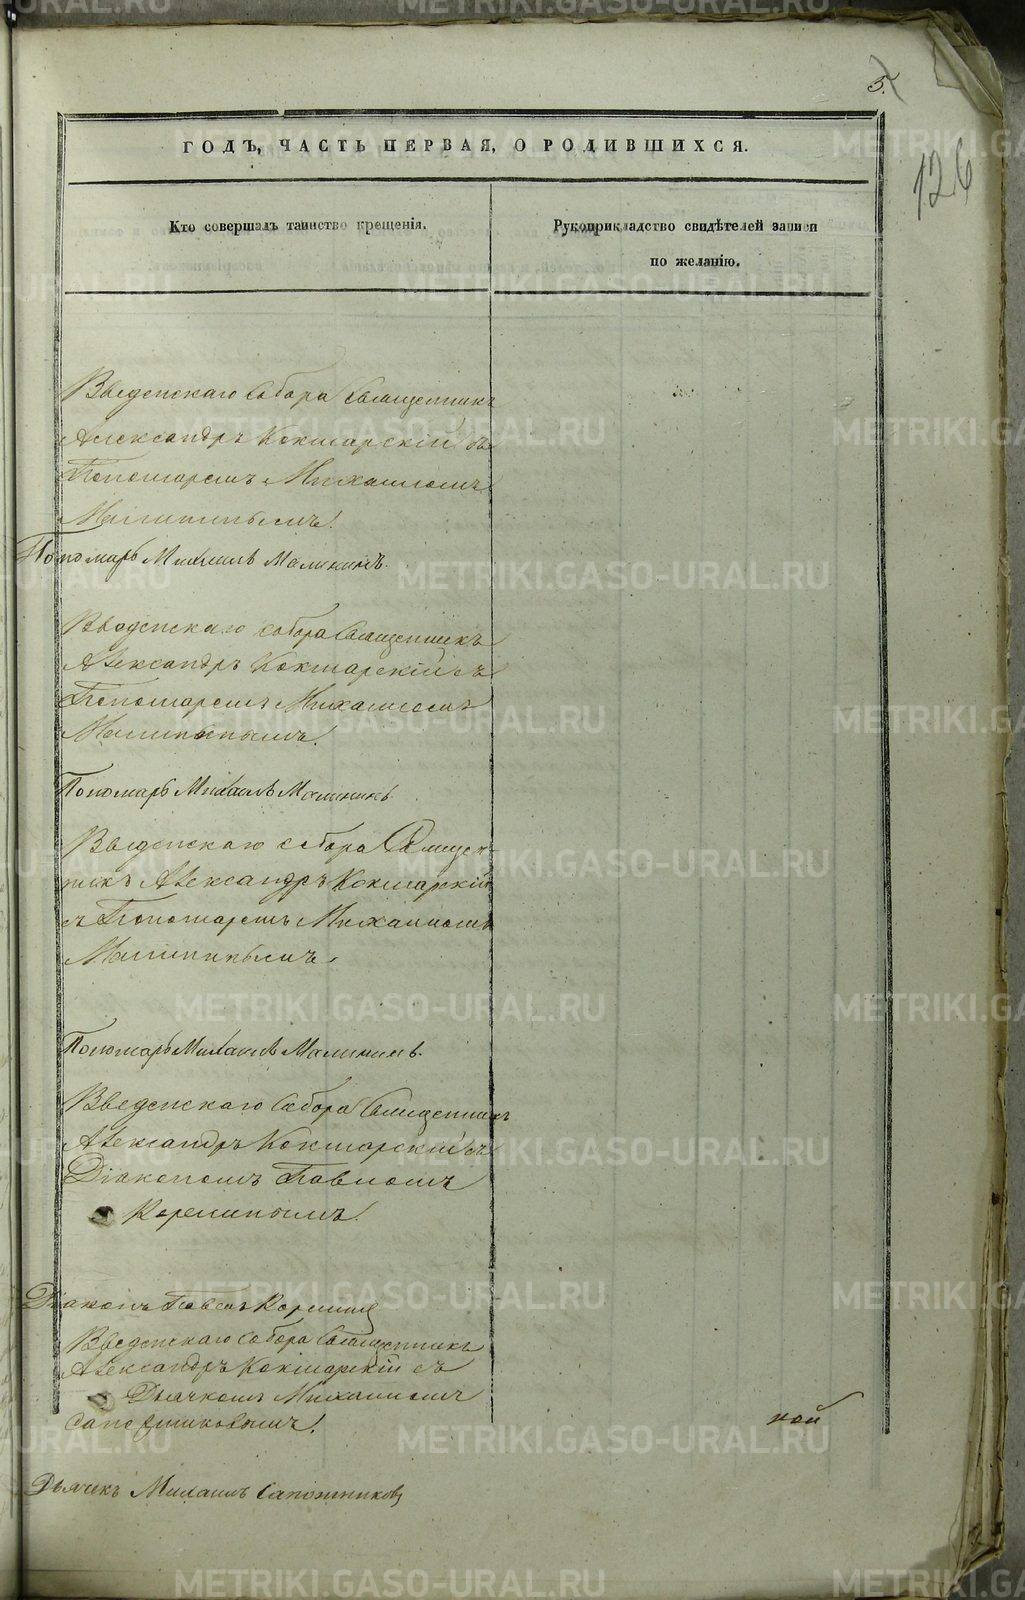 5.
126
ГОДЪ, ЧАСТЬ ПЕРВАЯ, О РОДИВШИХСЯ.
Кто совершалъ таинство крещенія.
Рукоприкладство свидѣтелей записи
по желанію.
Введенскаго Собора Священникъ
Александръ Кокшарскій съ
Пономаремъ Михаиломъ
Малининымъ.
Пономарь Михаилъ Малининъ.
Введенскаго собора Священникъ
Александръ Кокшарскій съ
Пономаремъ Михаиломъ
Малининымъ.
Пономарь Михаилъ Малининъ.
Введенскаго собора Священ-
никъ Александръ Кокшарскій
съ Пономаремъ Михаиломъ
Малининымъ.
Пономарь Михаилъ Малининъ.
Введенскаго Собора Священникъ
Александръ Кокшарскій съ
Діакономъ Павломъ
Корелинымъ.
Діаконъ Павелъ Корелинъ
Введенскаго Собора Священникъ
Александръ Кокшарскій съ
Дьячкомъ Михаиломъ
Сапожниковымъ.
кой
Дьячекъ Михаилъ Сапожниковъ
METRIKI.GASO-URAL.RU